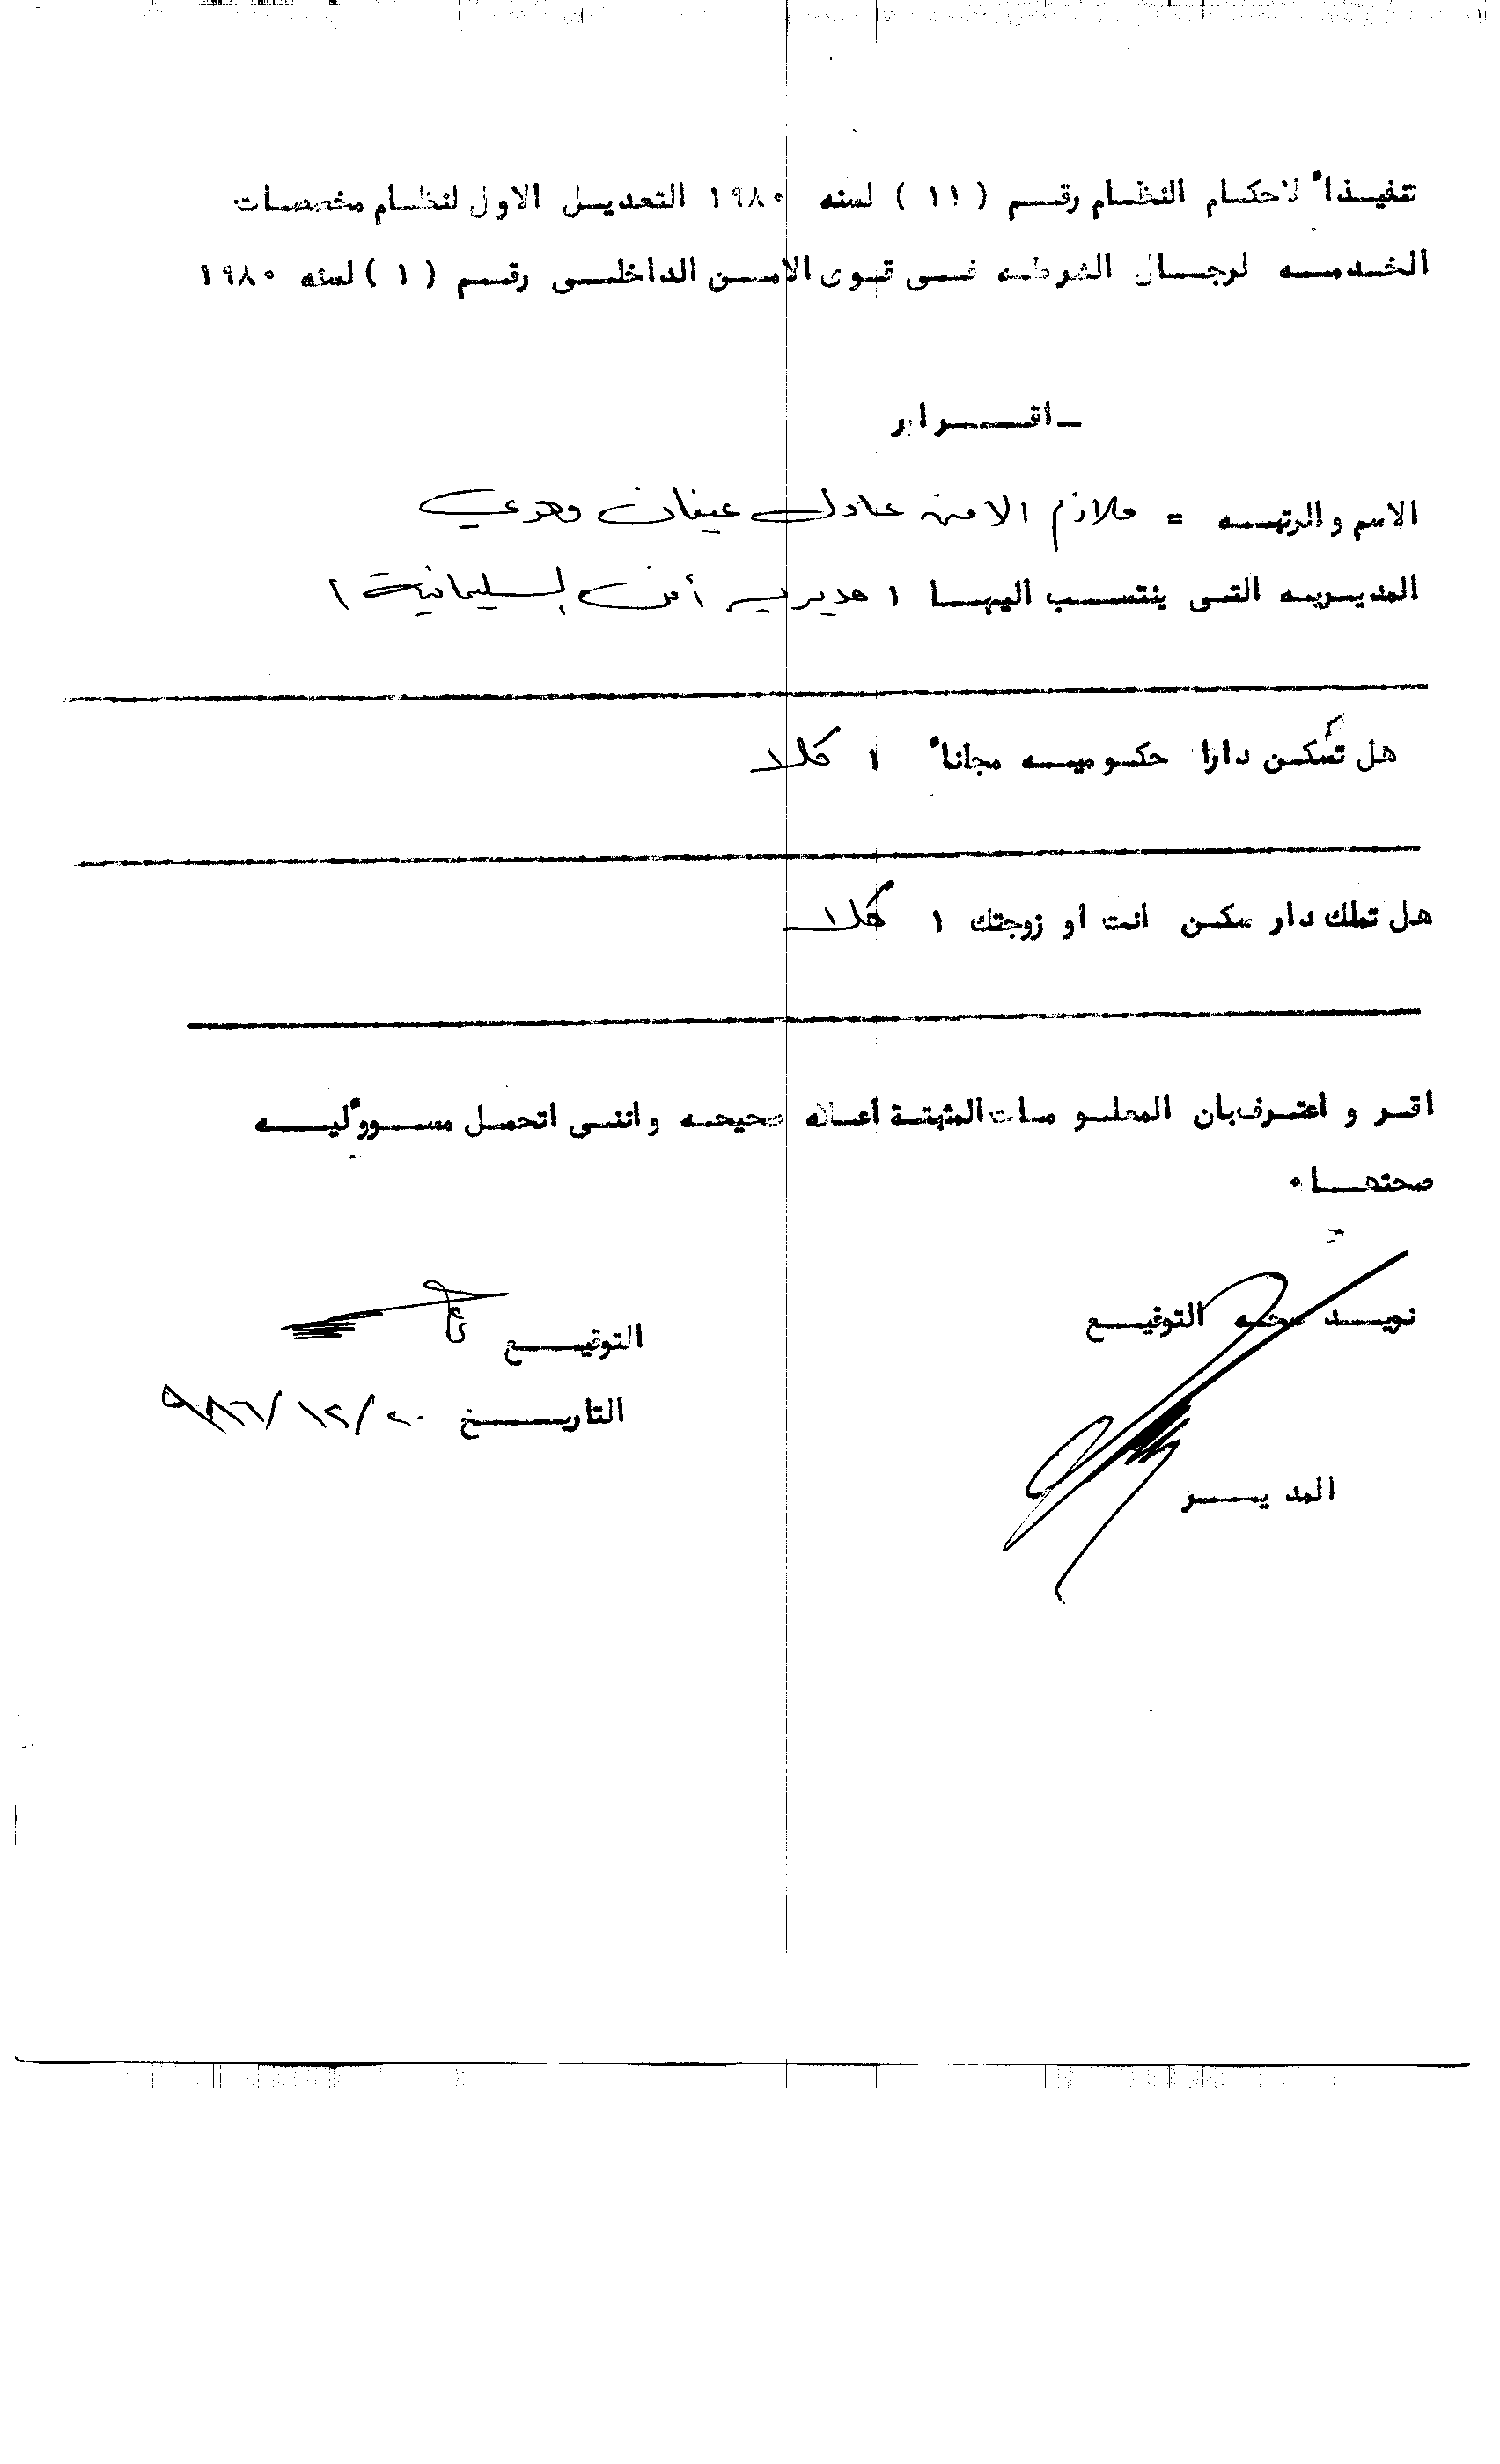 تنفيذاً لاحكام النظام رقم ( ١١ ) لسنه ١٩٨٠ التعديل الاول لنظام مخصصات
الخدمه لرجال الشرطه في قوى الامن الداخلي رقم ( ١ ) لسنه ١٩٨٠
ـ اقرار
الاسم والرتبه = ملازم الامن عادل عيفان مهدي
المديريه التي ينتسب اليها ( مديرية أمن السليمانية )
هل تسكن دارا حكوميه مجاناً ١ كلا
هل تملك دار سكن انت او زوجتك ١ كلا
اقر و اعترف بان المعلومات المثبتة اعلاه صحيحه وانني اتحمل مسووليه
صحتها٠
نويد صحه التوقيع
التوقيع
التاريخ ٢٠/ ١٢/ ٩٨٦
المدير